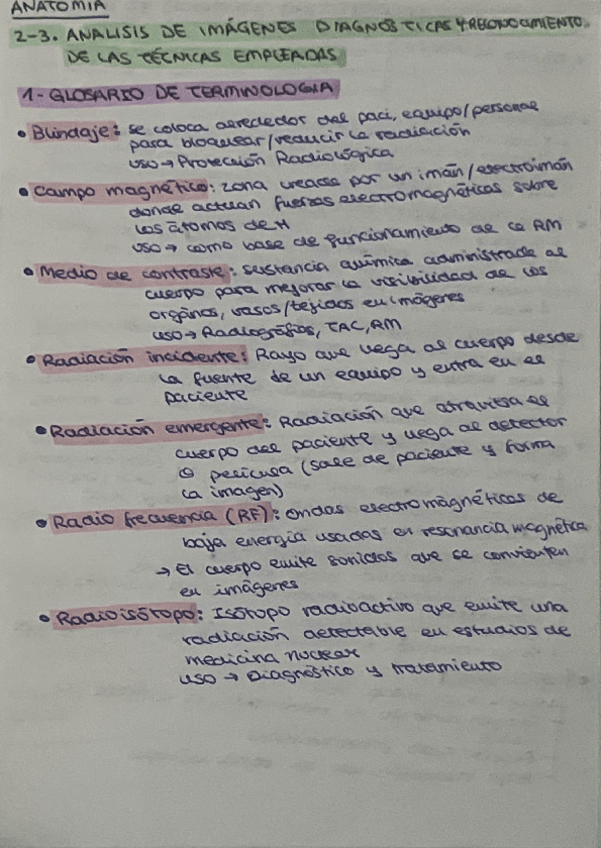 ANATOMIA
2-3. ANALISIS DE IMÁGENES DIAGNOSTICAS Y RECONOCIMIENTO
DE LAS TÉCNICAS EMPLEADAS
1- GLOSARIO DE TERMINOLOGIA
• Blindaje: se coloca alrededor del paci, equipo/personal
para bloquear/reducir la radiación
uso → Protección Radiológica
• Campo magnético: zona creada por un imán/electroimán
donde actuan fuerzas electromagnéticas sobre
los átomos de H
uso → como base de funcionamiento de la RM
• Medio de contraste: sustancia química administrada al
cuerpo para mejorar la visibilidad de los
organos, vasos/tejidos en imágenes
uso → Radiografías, TAC, RM
• Radiación incidente: Rayo que llega al cuerpo desde
la fuente de un equipo y entra en el
paciente
• Radiación emergente: Radiación que atraviesa el
cuerpo del paciente y llega al detector
o pelicula (sale de paciente y forma
la imagen)
• Radio frecuencia (RF): ondas electromagnéticas de
baja energía usadas en resonancia magnética
→ El cuerpo emite sonidos que se convierten
en imágenes
• Radioisótopo: Isótopo radioactivo que emite una
radiación detectable en estudios de
medicina nuclear
uso → Diagnóstico y tratamiento